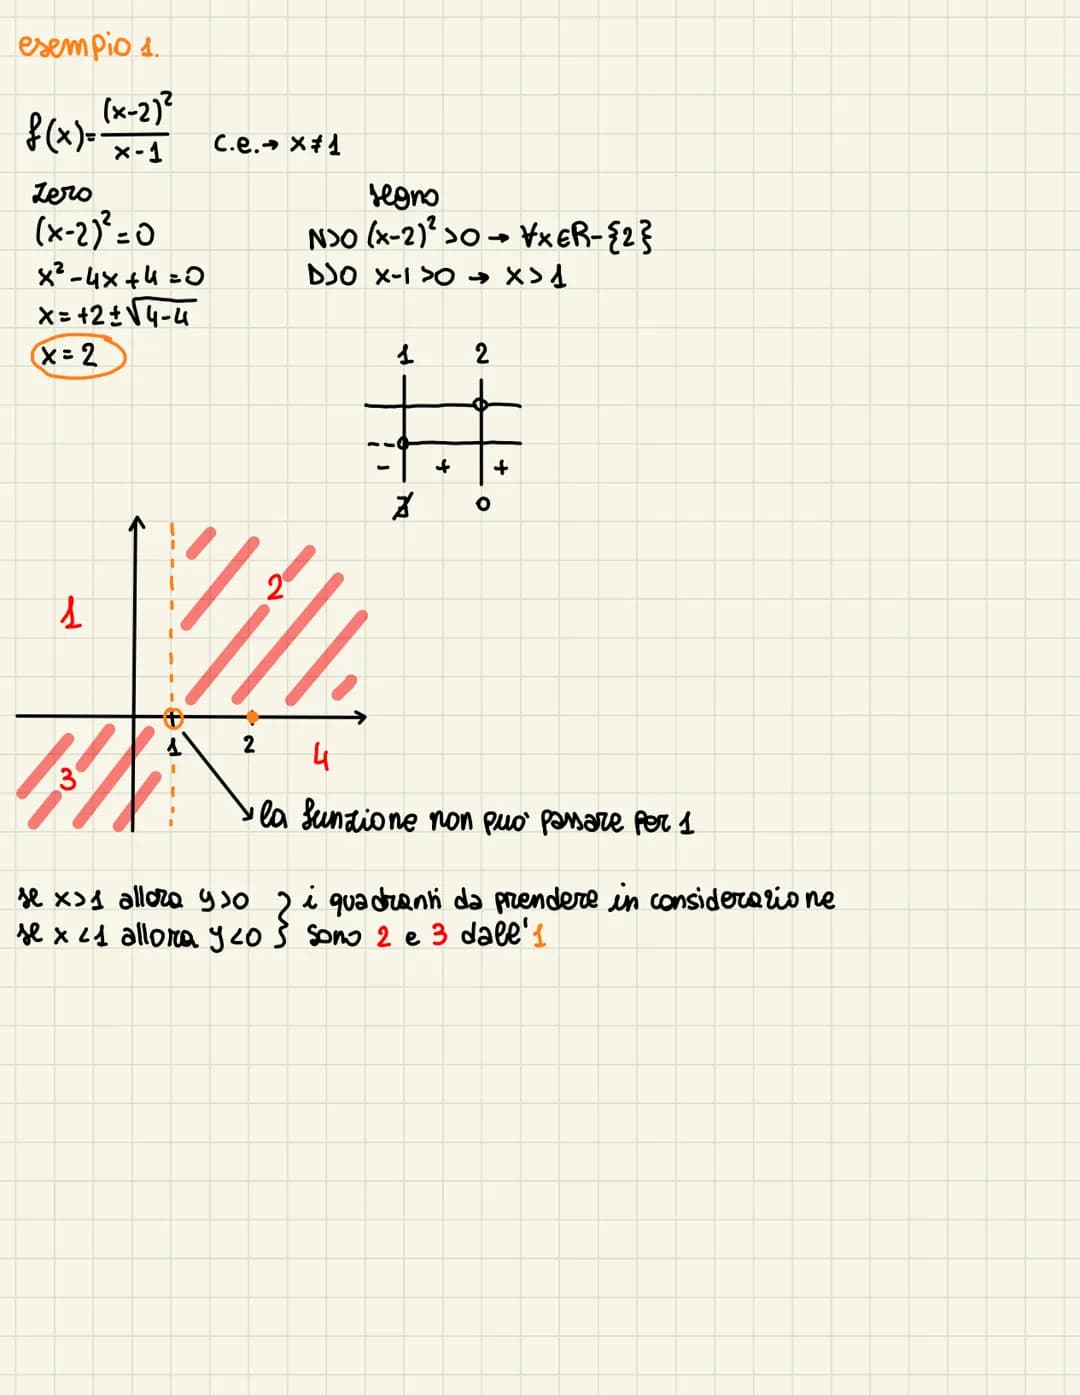 esempio 1.
f(x)=(x-2)²/x-1 C.e.→ x≠1
Zero
(x-2)²=0
x²-4x+4=0
x=+2±√4-4
x=2
segno
N>0 (x-2)²>0 → ∀x∈R-{2}
D>0 x-1>0 → x>1
1 2
- + +
∄ 0
1
2
1 2
3
4
la funzione non può passare per 1
se x>1 allora y>0 } i quadranti da prendere in considerazione
se x<1 allora y<0 } sono 2 e 3 dall'1